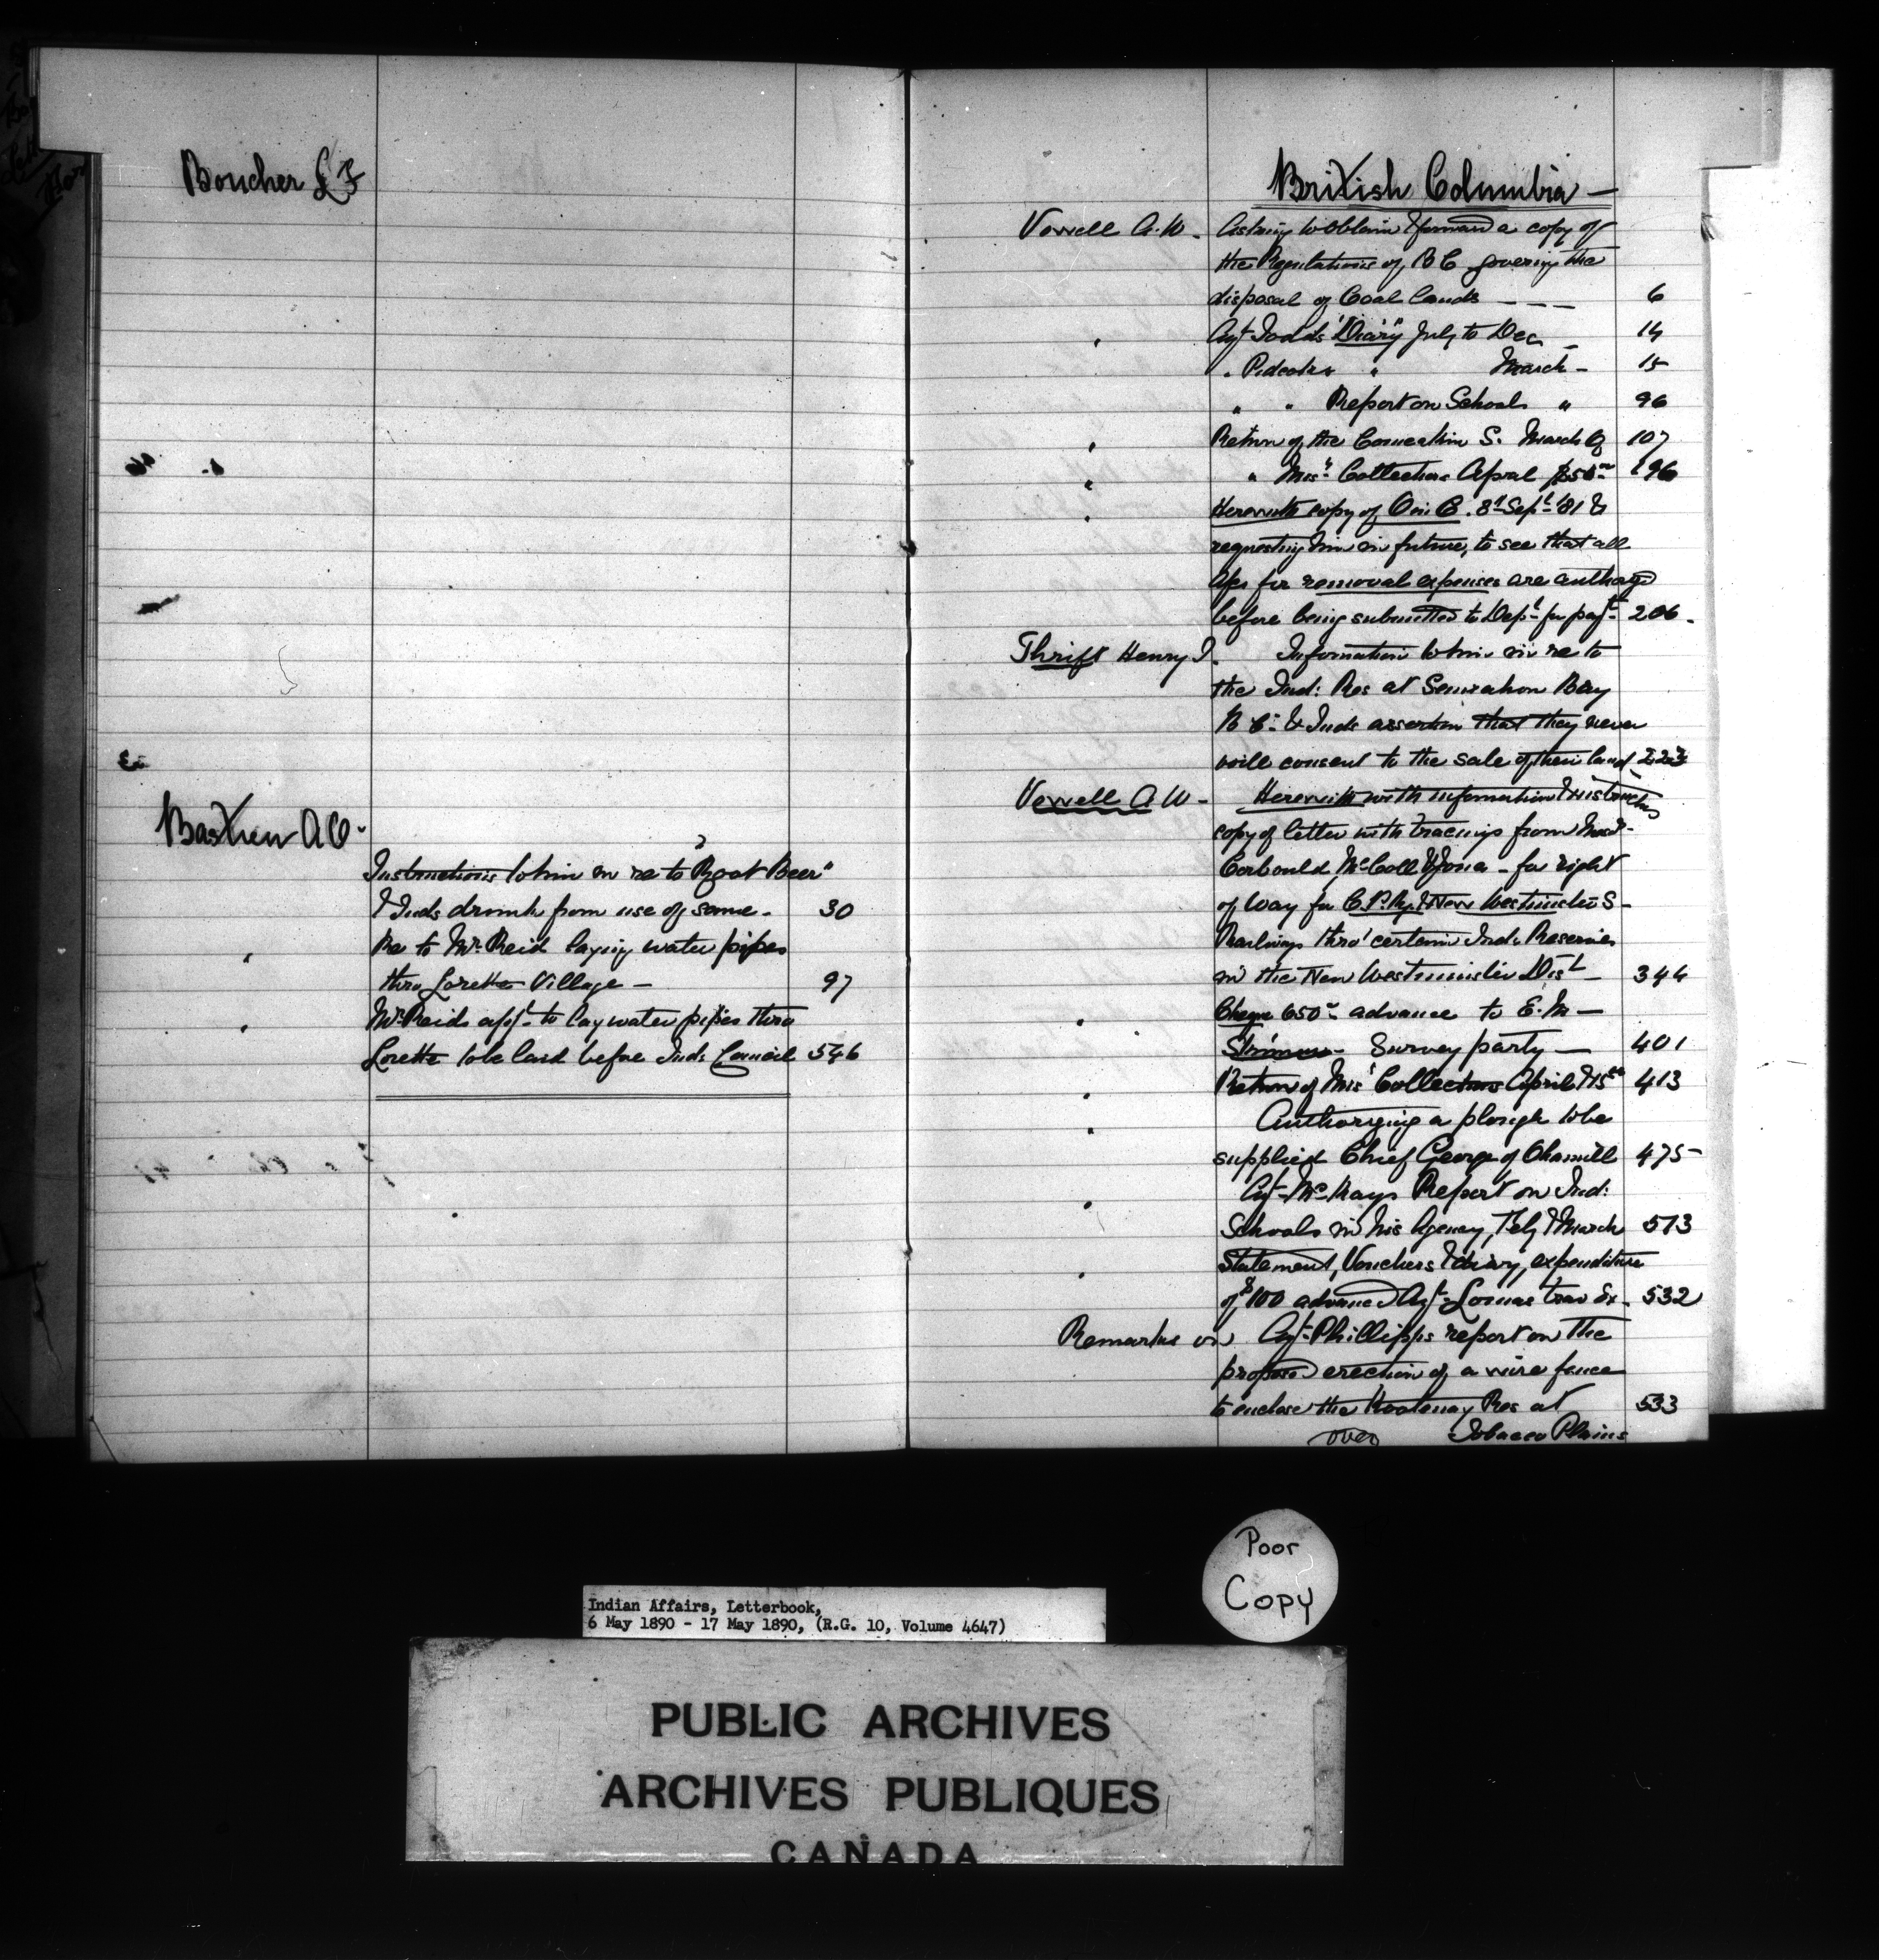 Boucher L F
Bastien A O.
Instructions to him in re to "Root Beer"
& Inds drunk from use of same - 30
" Re to Mr Reid laying water pipes
thro Lorette Village - 97
" Mr Reids appl to lay water pipes thro
Lorette to be laid before Inds Council 546
British Columbia -
Vowell A. W. - Asking to obtain & forward a copy of
the Regulations of B C governing the
disposal of Coal lands - - - 6
" Agt Todds "Diary" July to Dec - 14
" Pidcocks " March - 15
" " Report on Schools " 96
" Return of the Comeakin S. March Q 107
" " Mis Collections April $50 196
" Herewith copy of O in C. 8th Sept '81 &
requesting him in future, to see that all
a/cs for removal expenses are
before being submitted to Dept for payt 206.
Thrift Henry T. Information to him in re to
the Ind: Res at Semiahoo Bay
B C: & Inds assertion that they never
will consent to the sale of their land 223
Vowell A W - Herewith with information & instructions
copy of letter with tracings from Messrs
Corbould, McColl & Jones - for right
of Way for C. P. Ry & New Westminster S -
Railways thro' certain Inds Reserves
in the New Westminster Dist - 344
" Cheque 650 advance to E. M -
Skinner - Survey party - 401
" Return of Mis Collections April 413
" Authorizing a plough to be
supplied Chief George of Ohamill 475 -
" Agt McKays Report on Ind:
Schools in his Agency, Feby & March 513
" Statement, Vouchers & diary, expenditure
of $100 advanced Agt Lomas trav Ex. 532
Remarks on Agt Phillipps report on the
proposed erection of a wire fence
to enclose the Kootenay Res at 533
over Tobacco Plains
Poor
Copy
Indian Affairs, Letterbook,
6 May 1890 - 17 May 1890, (R.G. 10, Volume 4647)
PUBLIC ARCHIVES
ARCHIVES PUBLIQUES
CANADA